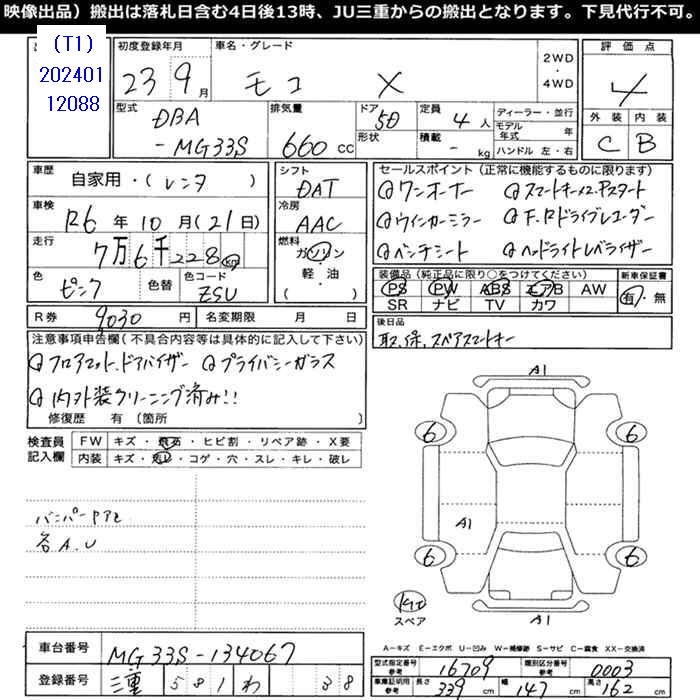 映像出品）搬出は落札日含む4日後13時、JU三重からの搬出となります。下見代行不可。
(T1)
202401
12088
初度登録年月
23 9月
車名・グレード
モコ X
2WD
・
4WD
評価点
4
外装 内装
C B
型式
DBA
-MG33S
排気量
660cc
ドア
5D
形状
定員
4人
積載
- kg
ディーラー・並行
モデル年式 年
ハンドル 左・右
車歴
自家用・(レンタ )
車検
R6年10月(21日)
走行
7万6千228km
色
ピンク
色替
色コード
ZSU
シフト
DAT
冷房
AAC
燃料
ガソリン
・
軽・油
( )
セールスポイント（正常に機能するものに限ります）
ワンオーナー
ウインカーミラー
F.Rドライブレコーダー
ベンチシート
ヘッドライトレベライザー
装備品（純正品に限り○をつけてください）
PS PW ABS エアB AW
SR ナビ TV カワ
新車保証書
有・無
R券
9030円
名変期限 月 日
後日品
取.保.スペアスマートキー
注意事項申告欄（不具合内容等は具体的に記入して下さい）
フロアマット.ドアバイザー プライバシーガラス
内外装クリーニング済み!!
修復歴 有 〔箇所
検査員
記入欄
FW
キズ・飛石・ヒビ割・リペア跡・X要
内装
キズ・汚レ・コゲ・穴・スレ・キレ・破レ
各A.U
A1
6
6
A1
6
6
スペア
A1
A-キズ E-エクボ U-凹み W-補修跡 S-サビ C-腐食 XX-交換済
車台番号
MG33S-134067
登録番号
三重 581 わ 38
型式指定番号
参考
16709
類別区分番号
参考
0003
車庫証明用
参考
長さ
339cm
幅
147cm
高さ
162cm